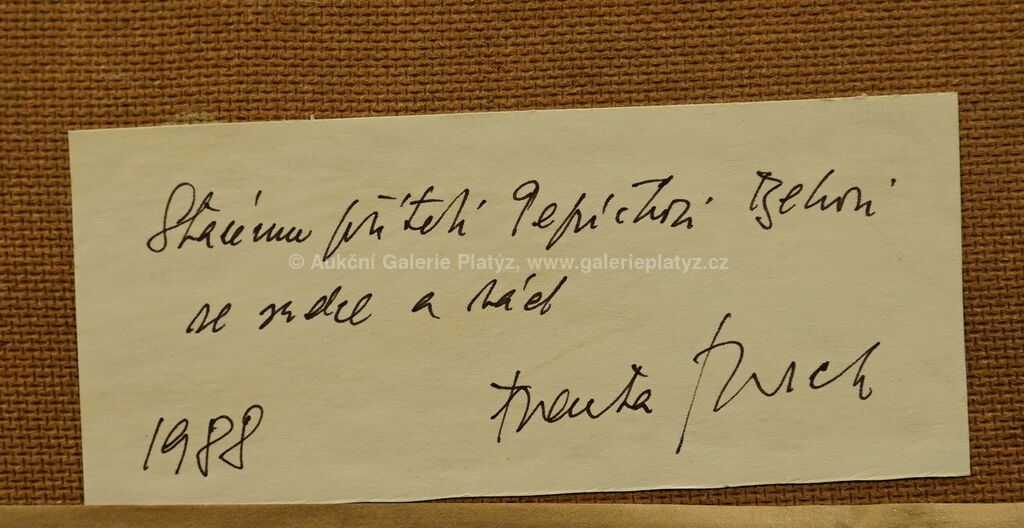 Starému příteli Pepíčkovi
© Aukční Galerie Platýz, www.galerieplatyz.cz
ze srdce a rád
1988
Franta